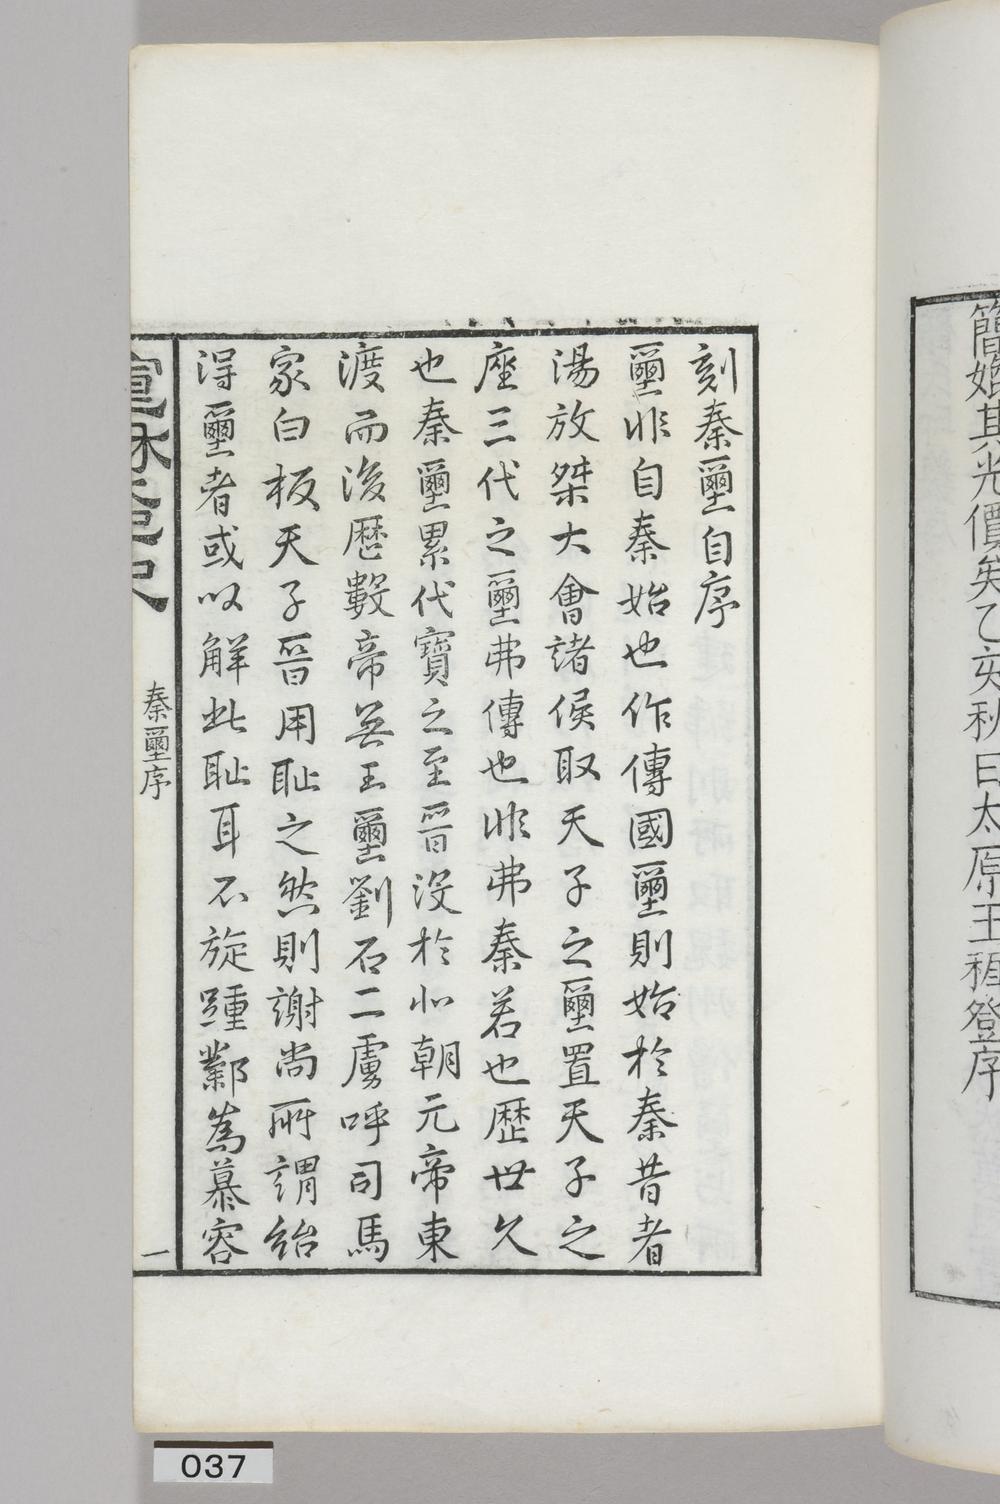 簡㛰其光價矣乙亥秋日太原王穉登序
刻秦璽自序
璽非自秦始也作傳國璽則始於秦昔者
湯放桀大會諸侯取天子之璽置天子之
座三代之璽弗傳也非弗秦若也歷世久
也秦璽累代寶之至晉沒於北朝元帝東
渡而後歷數帝無玉璽劉石二虜呼司馬
家白板天子晉用恥之然則謝尚所謂紿
得璽者或以解此恥耳不旋踵鄴為慕容
秦璽序
一
037